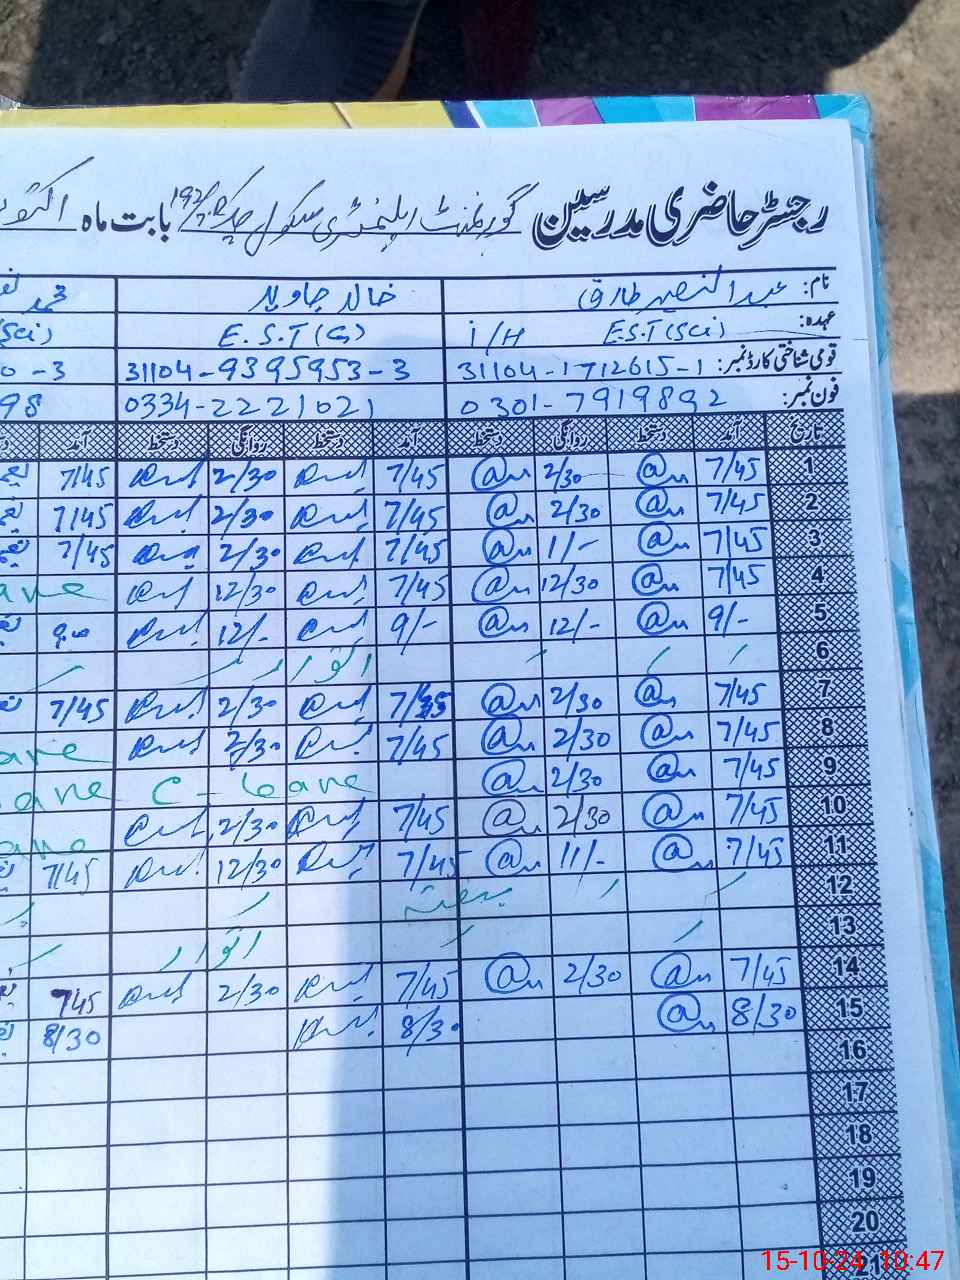 رجسٹر حاضری مدرسین گورنمنٹ ایلیمنٹری سکول چک 192/7.R بابت ماہ
نام: عبدالنصیر طارق خالد جاوید محمد
عہدہ: E.S.T(Sci) i/H E.S.T(G) Sci)
قومی شناختی کارڈ نمبر: 31104-1712615-1 31104-9395953-3 0-3
فون نمبر: 0301-7919892 0334-2221021 98
تاریخ آمد دستخط روانگی دستخط آمد دستخط روانگی دستخط آمد
1 7/45 2/30 7/45 2/30 7/45
2 7/45 2/30 7/45 2/30 7/45
3 7/45 1/- 7/45 2/30 7/45
4 7/45 12/30 7/45 12/30
5 9/- 12/- 9/- 12/-
6 اتوار
7 7/45 2/30 7/45 2/30 7/45
8 7/45 2/30 7/45 2/30
9 7/45 2/30 C-Leave
10 7/45 2/30 7/45 2/30
11 7/45 11/- 7/45 12/30 7/45
12
13 اتوار
14 7/45 2/30 7/45 2/30 7/45
15 8/30 8/30 8/30
16
17
18
19
20
21
15-10-24 10:47